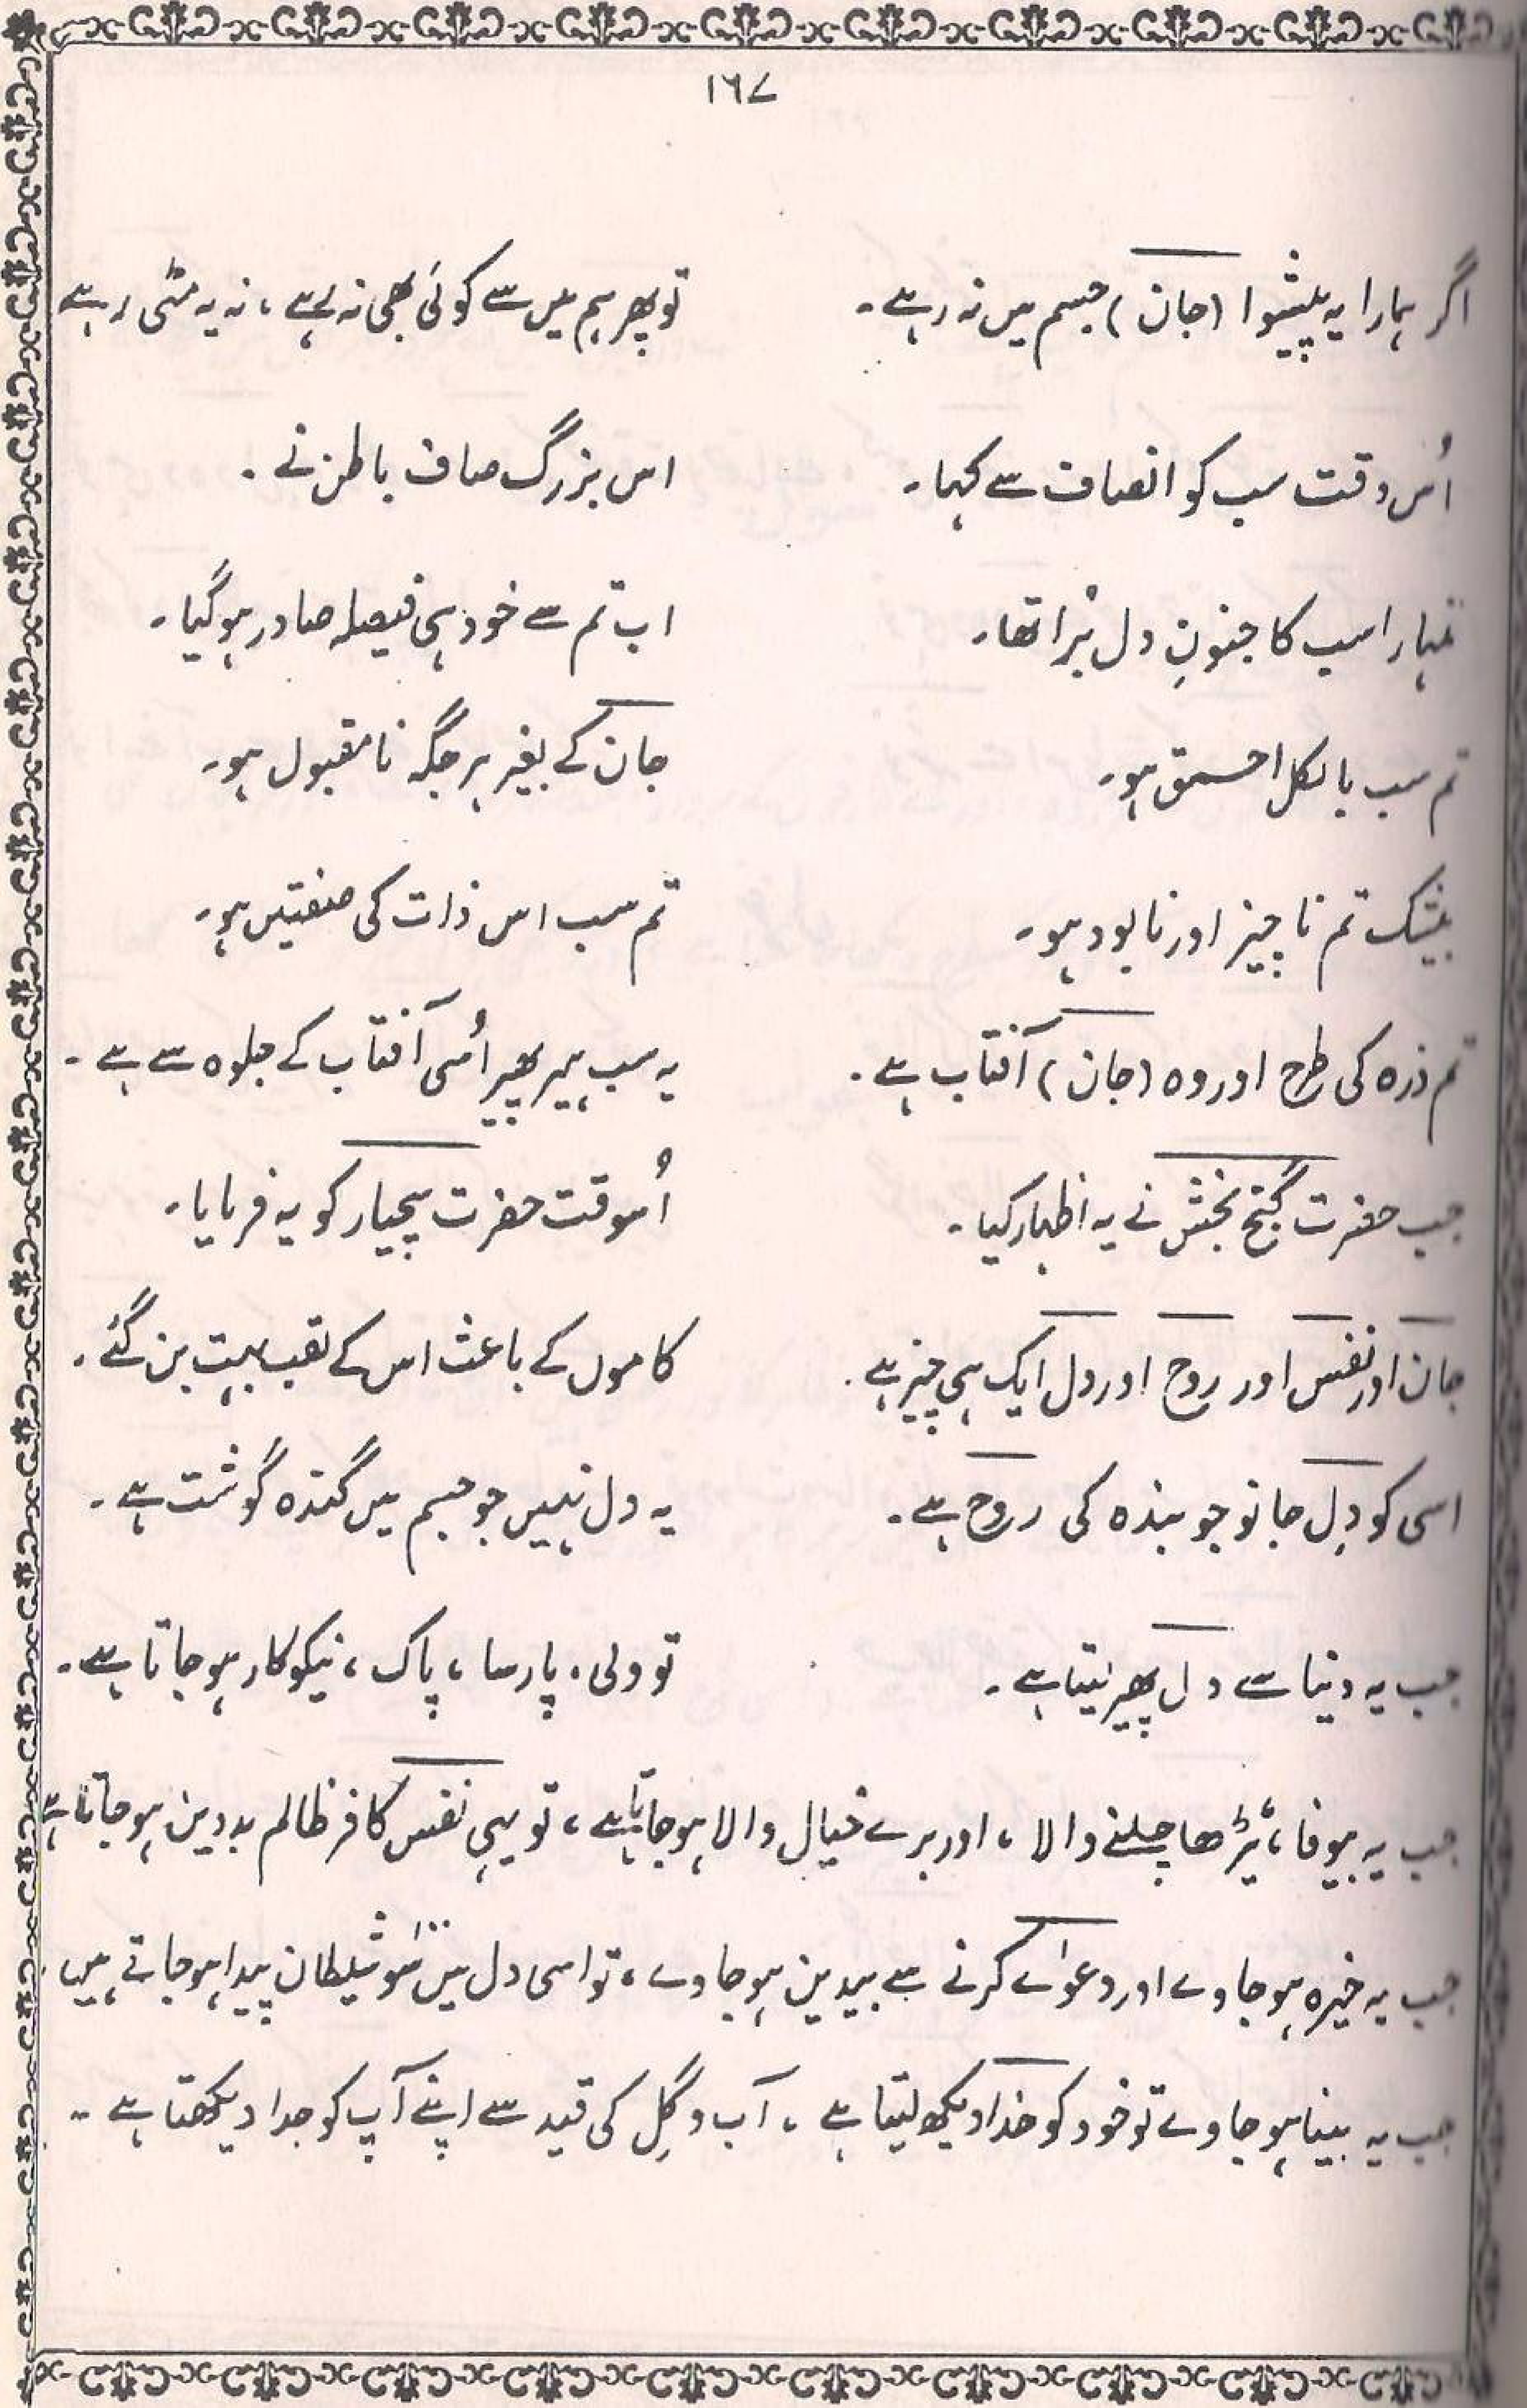 ١٦٧
اگر ہمارا یہ پیشوا (جان) جسم میں نہ رہے۔ تو پھر ہم میں سے کوئی بھی نہ رہے، نہ یہ مٹی رہے
اُس وقت سب کو انصاف سے کہا۔ اس بزرگ صاف باطن نے۔
تمہارا سب کا جنونِ دل بُرا تھا۔ اب تم سے خود ہی فیصلہ صادر ہو گیا۔
تم سب بالکل احمق ہو۔ جان کے بغیر ہر جگہ نامقبول ہو۔
بیشک تم ناچیز اور نابود ہو۔ تم سب اس ذات کی صفتیں ہو۔
تم ذرہ کی طرح اور وہ (جان) آفتاب ہے۔ یہ سب ہیر پھیر اُسی آفتاب کے جلوہ سے ہے۔
جب حضرت گنج بخش نے یہ اظہار کیا۔ اُسوقت حضرت سچیار کو یہ فرمایا۔
جان اور نفس اور روح اور دل ایک ہی چیز ہے۔ کاموں کے باعث اس کے لقب بہت بن گئے۔
اسی کو دِل جانو جو بندہ کی روح ہے۔ یہ دل نہیں جو جسم میں گندہ گوشت ہے۔
جب یہ دنیا سے دل پھیر لیتا ہے۔ تو ولی، پارسا، پاک، نیکوکار ہو جاتا ہے۔
جب یہ بیوفا، ٹیڑھا چلنے والا، اور برے خیال والا ہو جاتا ہے، تو یہی نفس کافر ظالم بددین ہو جاتا ہے
جب یہ خیرہ ہو جاوے اور دعوٰے کرنے سے بیدین ہو جاوے، تو اسی دل میں سَو شیطان پیدا ہو جاتے ہیں
جب یہ بینا ہو جاوے تو خود کو خدا دیکھ لیتا ہے، آب و گِل کی قید سے اپنے آپ کو جدا دیکھتا ہے۔